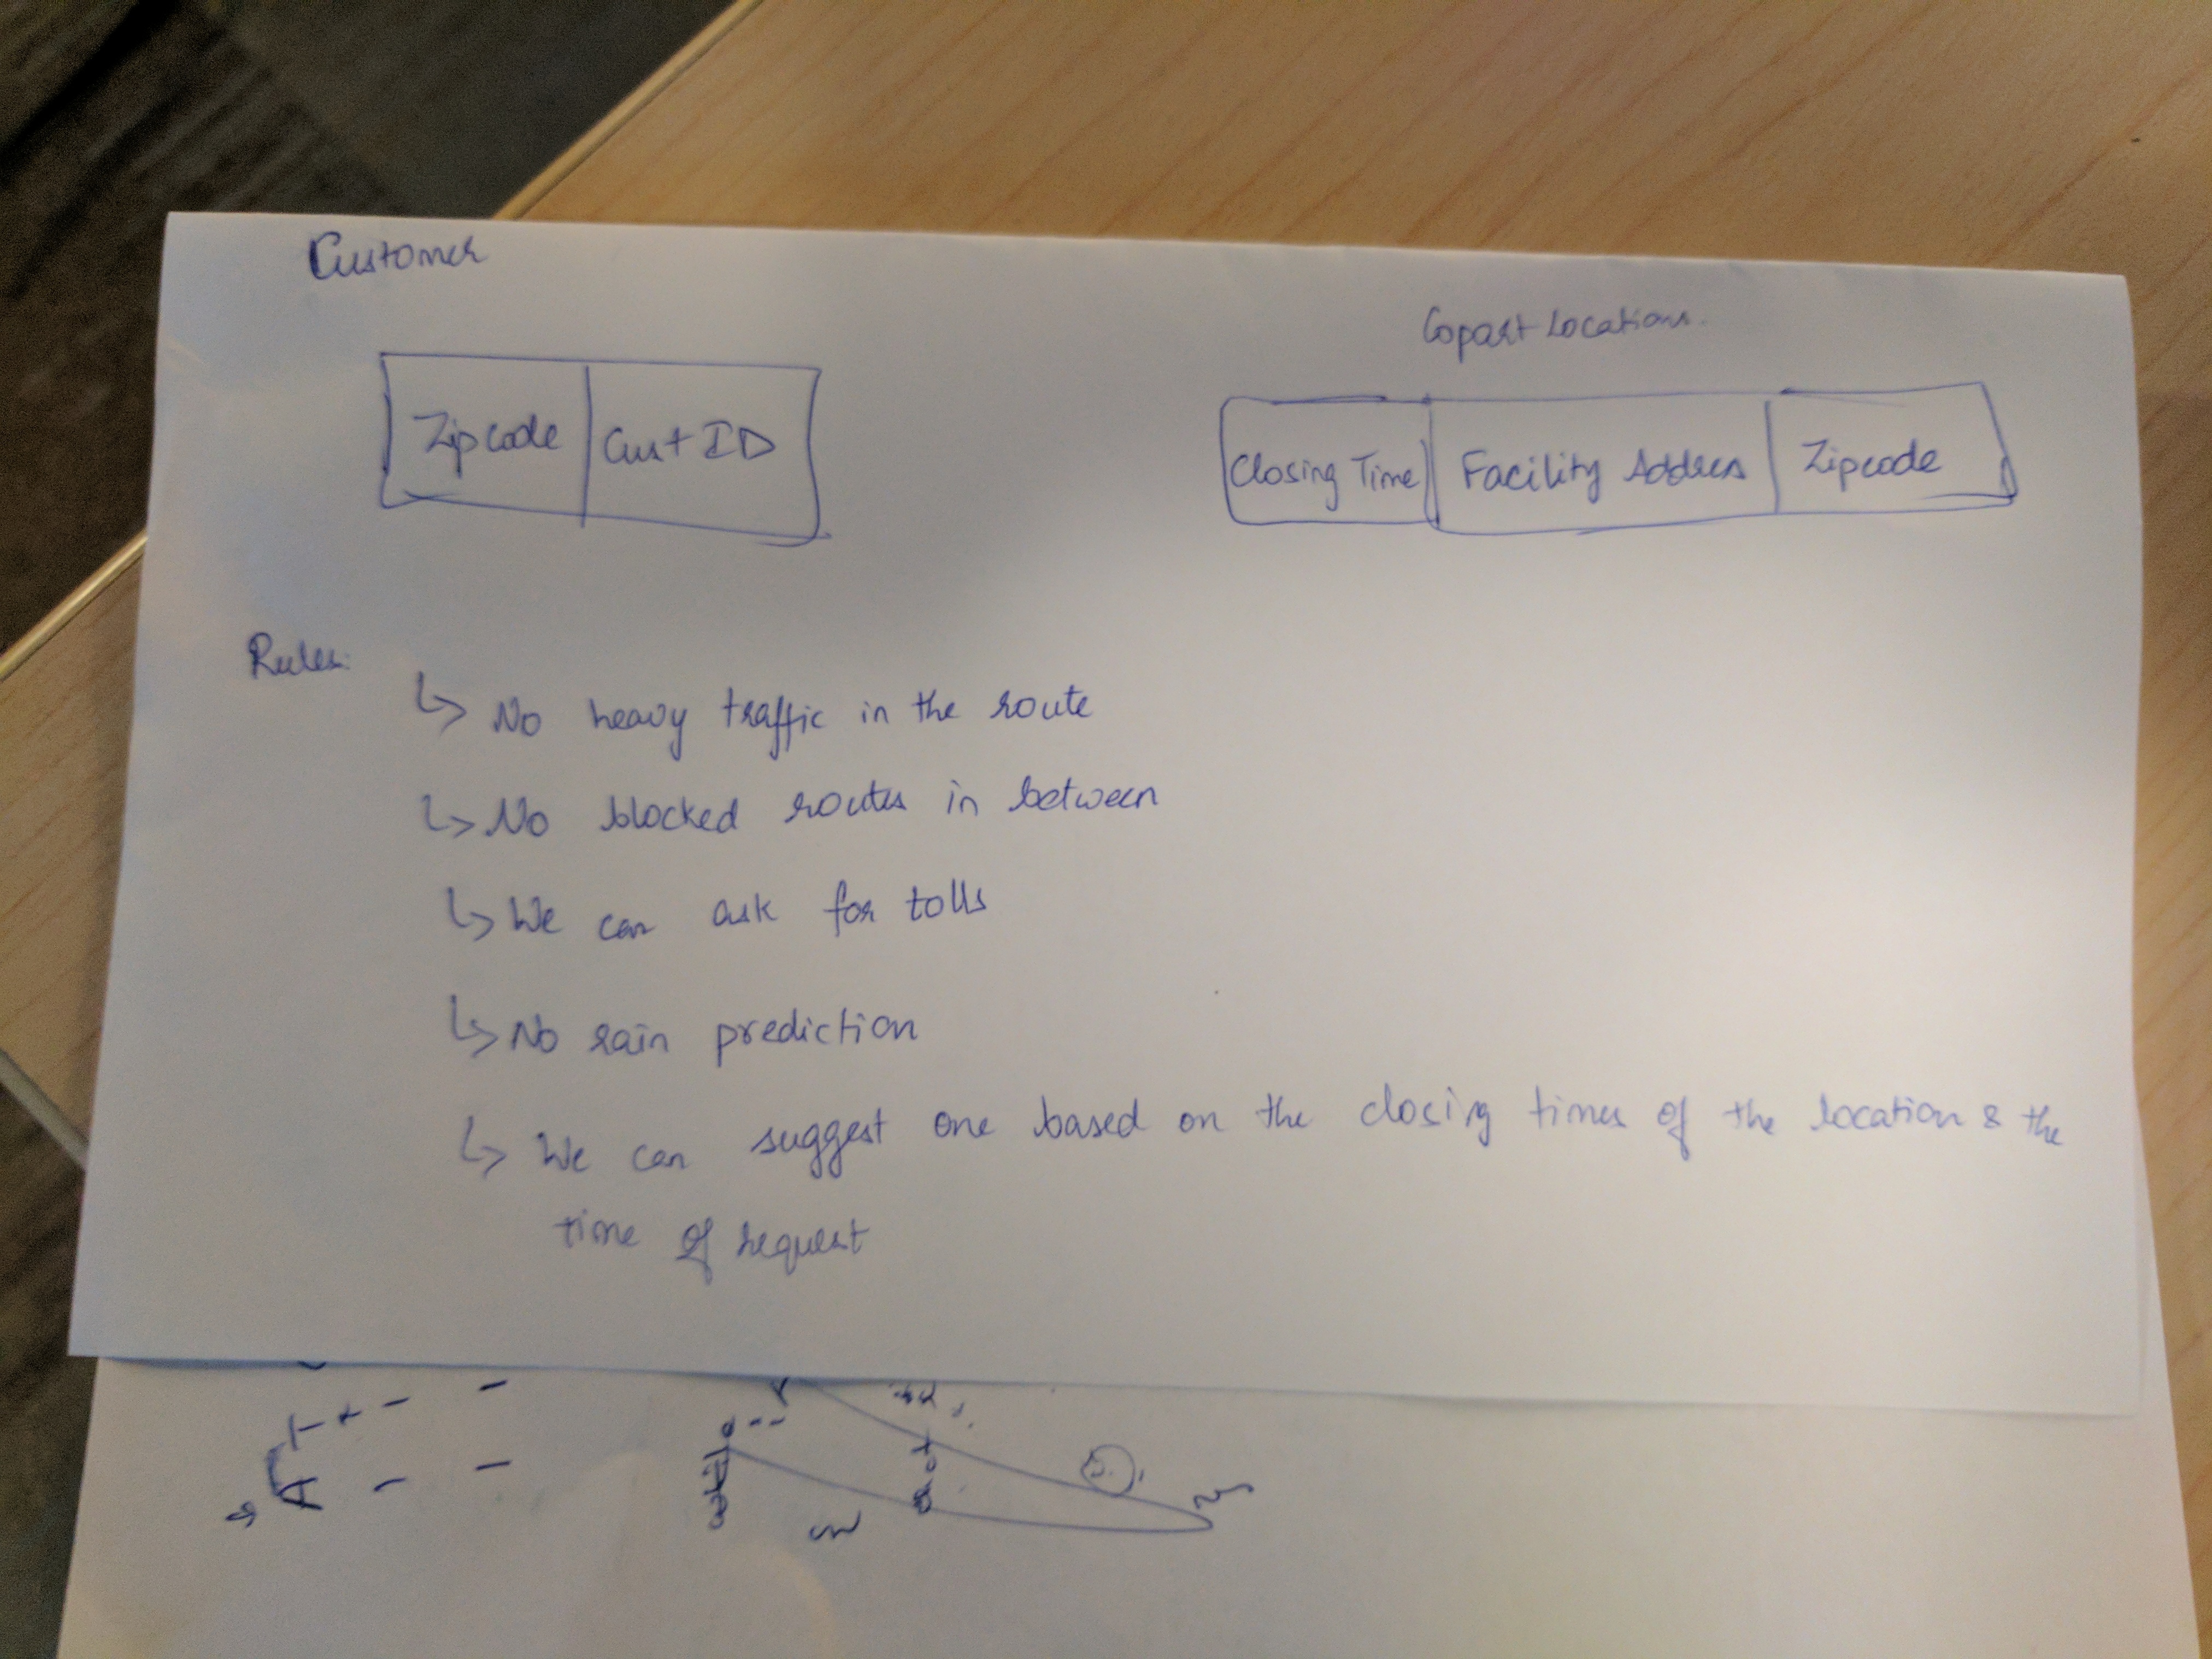 Customer
Copart Locations.
Zipcode Cust ID
Closing Time Facility Address Zipcode
Rules:
↳ No heavy traffic in the route
↳ No blocked routes in between
↳ We can ask for tolls
↳ No rain prediction
↳ We can suggest one based on the closing times of the location & the
time of request